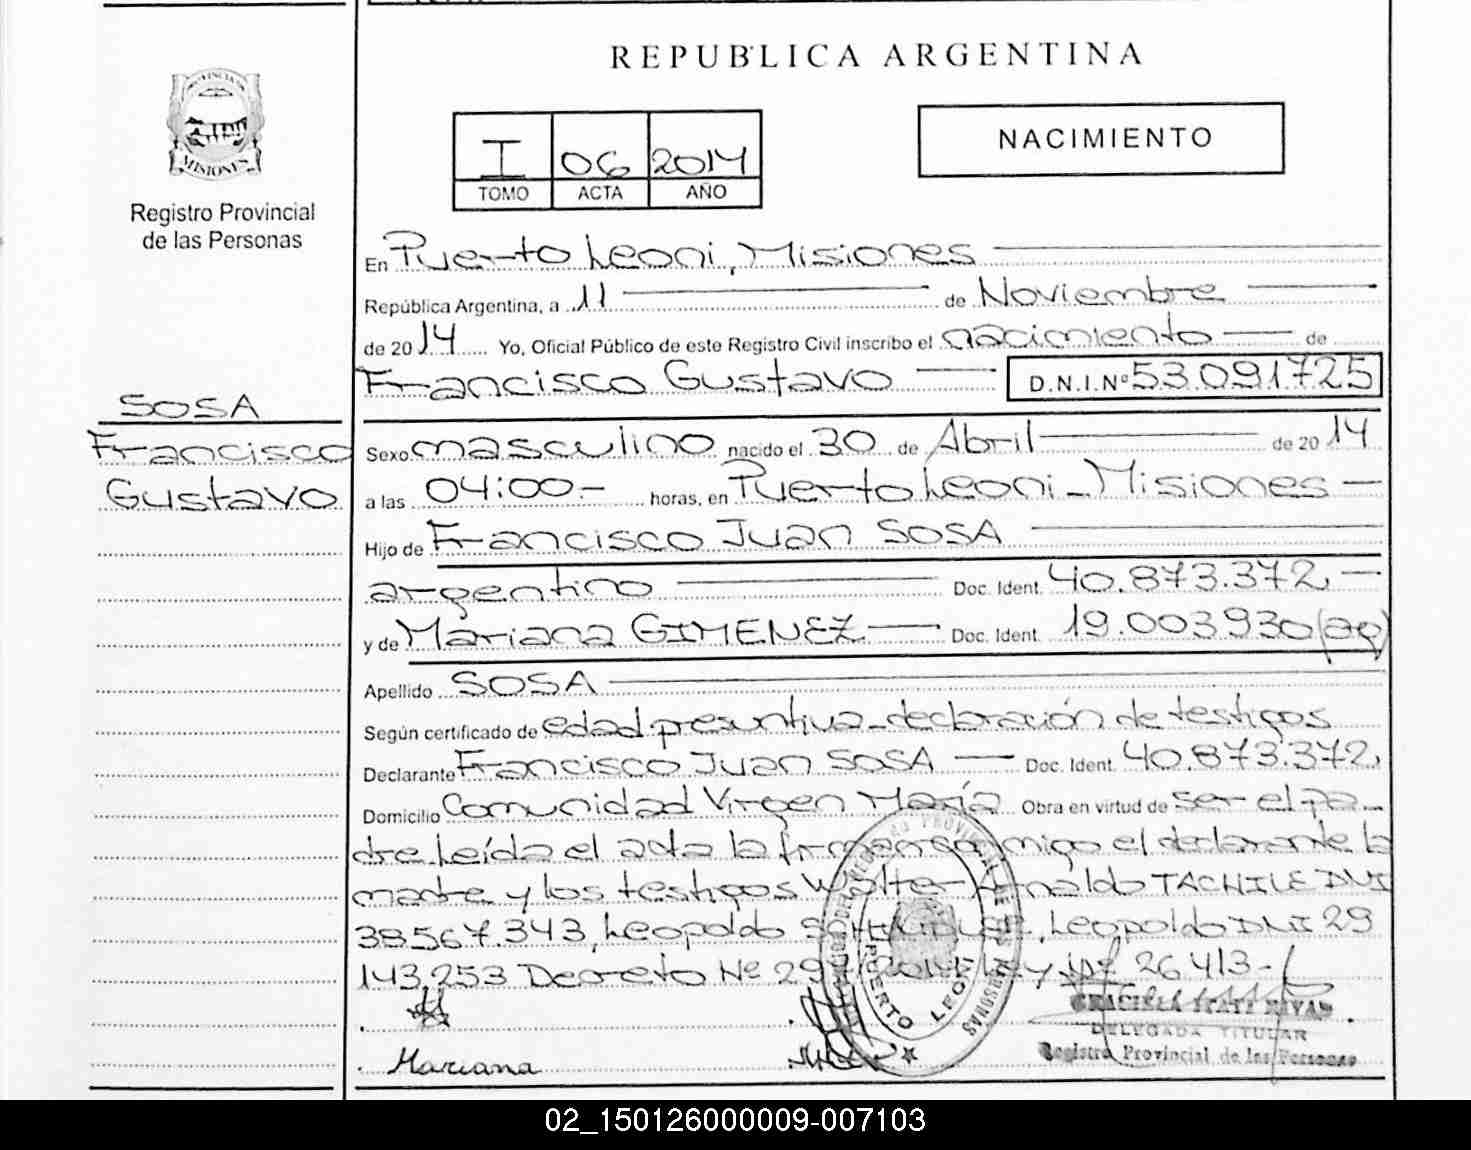 REPUBLICA ARGENTINA
PROVINCIA DE
MISIONES
Registro Provincial
de las Personas
I 06 2014
TOMO ACTA AÑO
NACIMIENTO
En Puerto Leoni, Misiones
República Argentina, a 11 de Noviembre
de 2014 Yo, Oficial Público de este Registro Civil inscribo el nacimiento de
Francisco Gustavo D.N.I.Nº 53.091.725
SOSA
Francisco
Gustavo
Sexo masculino nacido el 30 de Abril de 2014
a las 04:00.- horas, en Puerto Leoni - Misiones
Hijo de Francisco Juan SOSA
argentino Doc. Ident. 40.873.372
y de Mariana GIMENEZ Doc. Ident. 19.003930 (ar)
Apellido SOSA
Según certificado de edad presuntiva - declaración de testigos
Declarante Francisco Juan SOSA Doc. Ident. 40.873.372
Domicilio Comunidad Virgen María Obra en virtud de ser el pa
dre Leída el acta la firman conmigo el declarante la
madre y los testigos Walter Arnaldo TACHILE DNI
38567.343, Leopoldo Leopoldo DNI 29
143.253 Decreto Nº Ley Nº 26413-
Mariana
PUERTO LEONI
GRACIELA ITATI RIVAS
DELEGADA TITULAR
Registro Provincial de las Personas
02_150126000009-007103